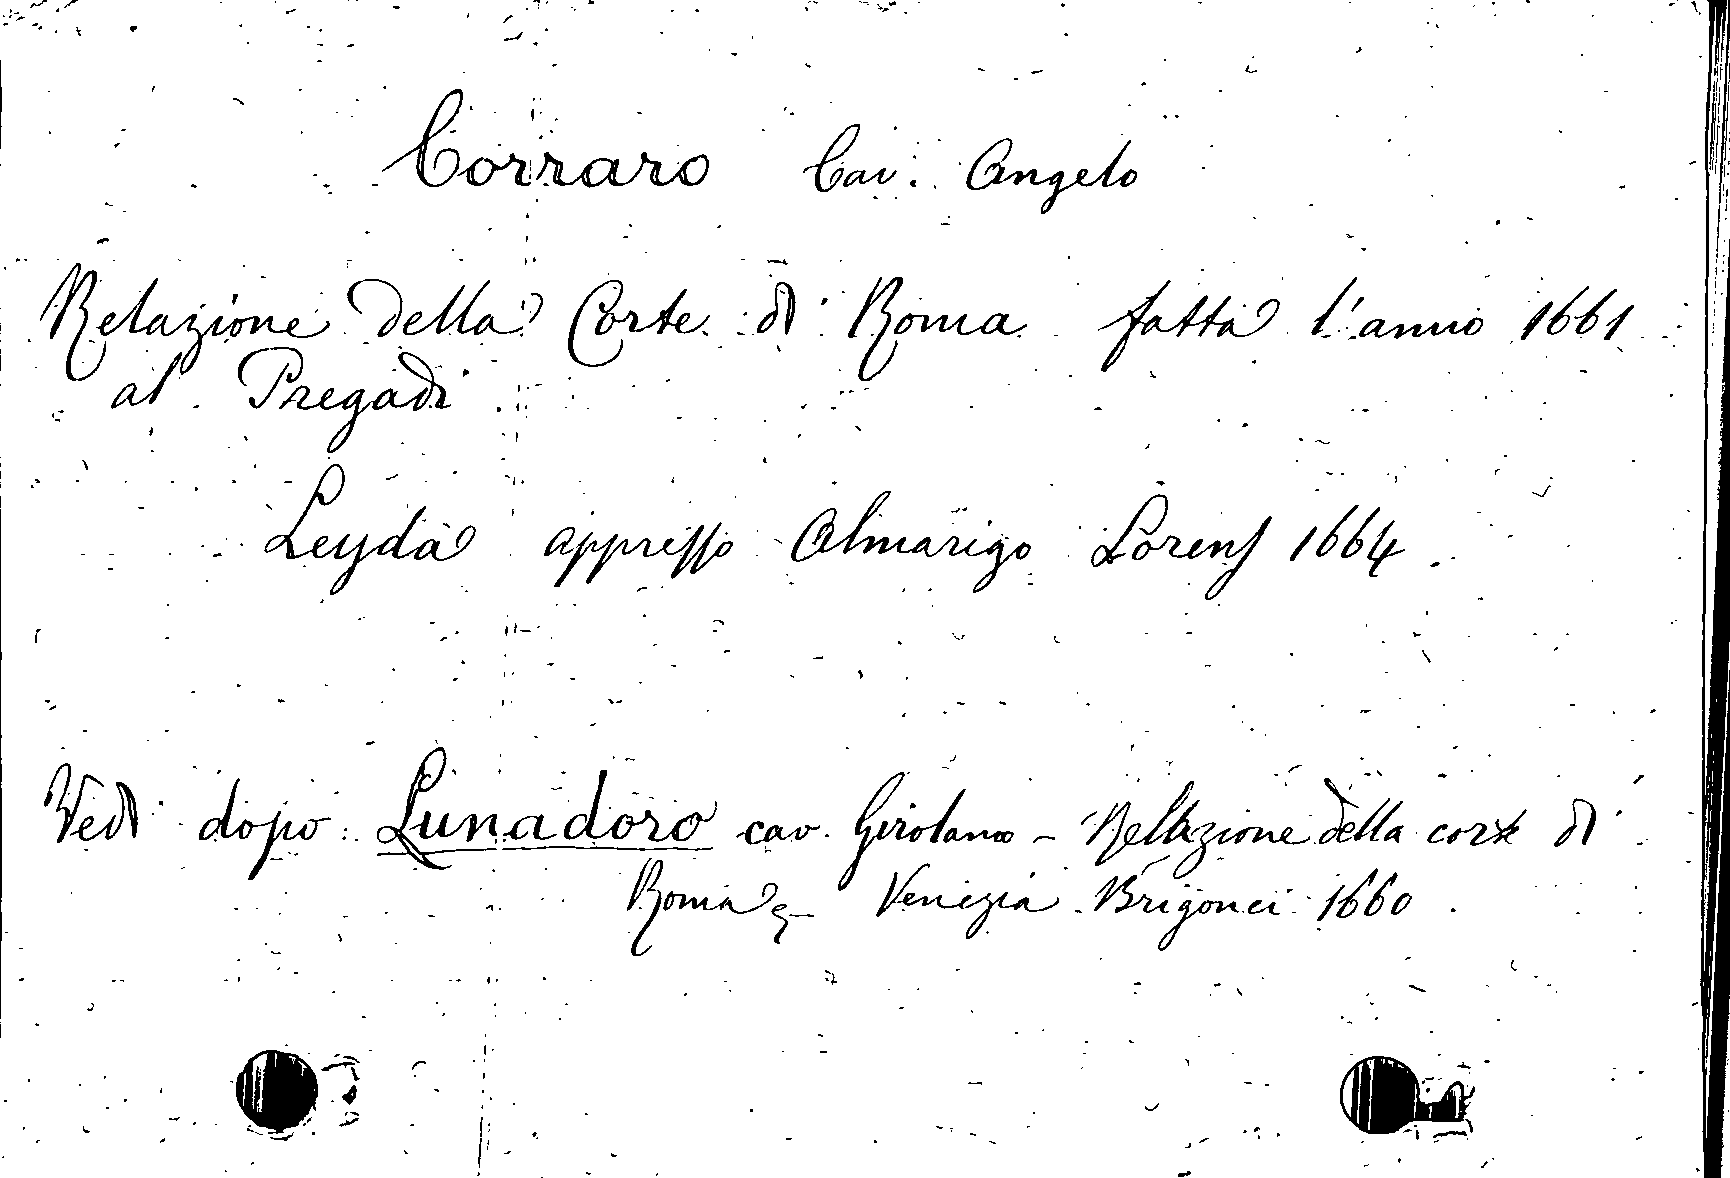 Corraro Cav. Angelo
Relazione della Corte di Roma fatta l'anno 1661
al Pregadi
Leyda appresso Almarigo Lorens 1664.
Vedi dopo: Lunadoro cav. Girolamo - Rellazione della corte di
Roma - Venezia Brigonci 1660.